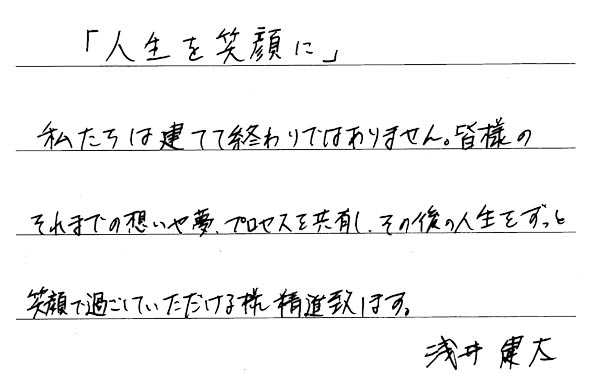 「人生を笑顔に」
私たちは建てて終わりではありません。皆様の
それまでの想いや夢、プロセスを共有し、その後の人生をずっと
笑顔で過ごしていただける様、精進致します。
浅井 健太